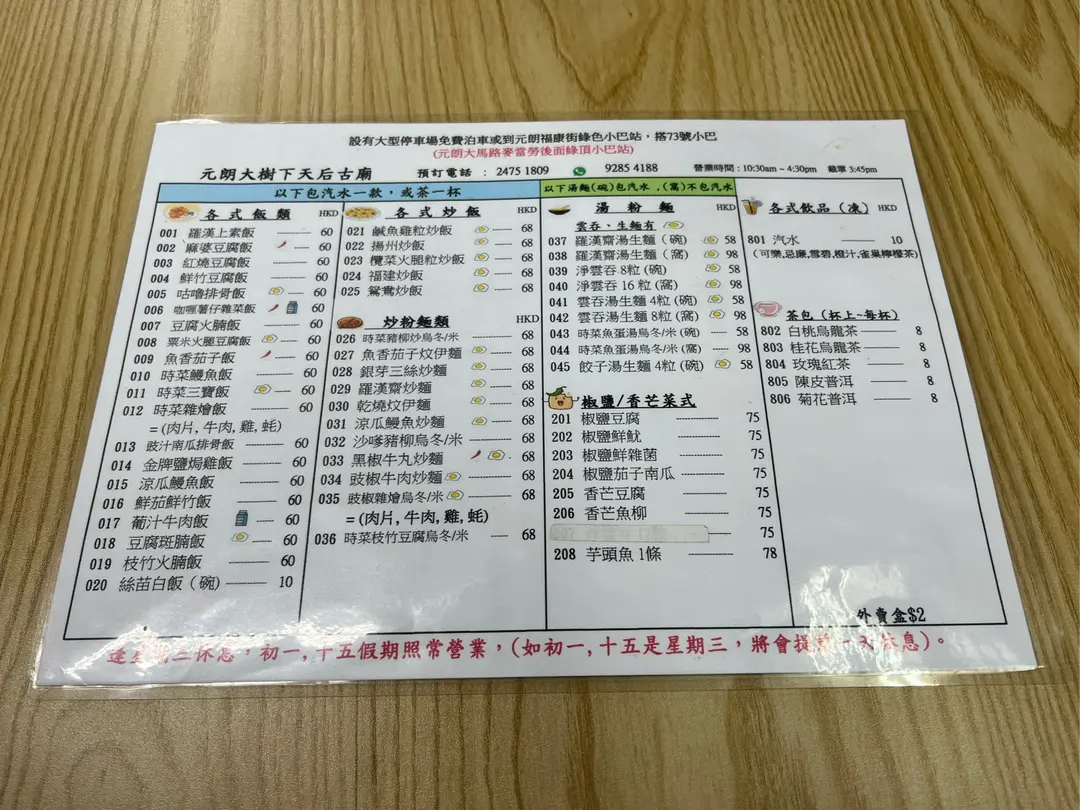 設有大型停車場免費泊車或到元朗福康街綠色小巴站，搭73號小巴
(元朗大馬路麥當勞後面綠頂小巴站)
元朗大樹下天后古廟 預訂電話 : 2475 1809 9285 4188 營業時間 : 10:30am ~ 4:30pm 截單 3:45pm
以下包汽水一款，或茶一杯
各式飯類 HKD
001 羅漢上素飯 60
002 麻婆豆腐飯 60
003 紅燒豆腐飯 60
004 鮮竹豆腐飯 60
005 咕嚕排骨飯 60
006 咖喱薯仔雜菜飯 60
007 豆腐火腩飯 60
008 粟米火腿豆腐飯 60
009 魚香茄子飯 60
010 時菜鰻魚飯 60
011 時菜三寶飯 60
012 時菜雜燴飯 60
= (肉片, 牛肉, 雞, 蚝)
013 豉汁南瓜排骨飯 60
014 金牌鹽焗雞飯 60
015 涼瓜鰻魚飯 60
016 鮮茄鮮竹飯 60
017 葡汁牛肉飯 60
018 豆腐斑腩飯 60
019 枝竹火腩飯 60
020 絲苗白飯（碗) 10
各式炒飯 HKD
021 鹹魚雞粒炒飯 68
022 揚州炒飯 68
023 欖菜火腿粒炒飯 68
024 福建炒飯 68
025 鴛鴦炒飯 68
炒粉麵類 HKD
026 時菜豬柳炒烏冬/米 68
027 魚香茄子炆伊麵 68
028 銀芽三絲炒麵 68
029 羅漢齋炒麵 68
030 乾燒炆伊麵 68
031 涼瓜鰻魚炒麵 68
032 沙嗲豬柳烏冬/米 68
033 黑椒牛丸炒麵 68
034 豉椒牛肉炒麵 68
035 豉椒雜燴烏冬/米 68
= (肉片, 牛肉, 雞, 蚝)
036 時菜枝竹豆腐烏冬/米 68
以下湯麵(碗)包汽水 ,(窩)不包汽水
湯粉麵 HKD
雲吞、生麵有
037 羅漢齋湯生麵（碗） 58
038 羅漢齋湯生麵（窩） 98
039 淨雲吞 8粒 (碗) 58
040 淨雲吞 16 粒 (窩) 98
041 雲吞湯生麵 4粒 (碗) 58
042 雲吞湯生麵 8粒 (窩) 98
043 時菜魚蛋湯烏冬/米 (碗) 58
044 時菜魚蛋湯烏冬/米 (窩) 98
045 餃子湯生麵 4粒 (碗) 58
椒鹽/香芒菜式
201 椒鹽豆腐 75
202 椒鹽鮮魷 75
203 椒鹽鮮雜菌 75
204 椒鹽茄子南瓜 75
205 香芒豆腐 75
206 香芒魚柳 75
75
208 芋頭魚 1條 78
各式飲品（凍） HKD
801 汽水 10
(可樂,忌廉,雪碧,橙汁,雀巢檸檬茶)
茶包（杯上~每杯）
802 白桃烏龍茶 8
803 桂花烏龍茶 8
804 玫瑰紅茶 8
805 陳皮普洱 8
806 菊花普洱 8
外賣盒$2
逢星期三休息，初一, 十五假期照常營業，(如初一, 十五是星期三，將會提前一天休息)。